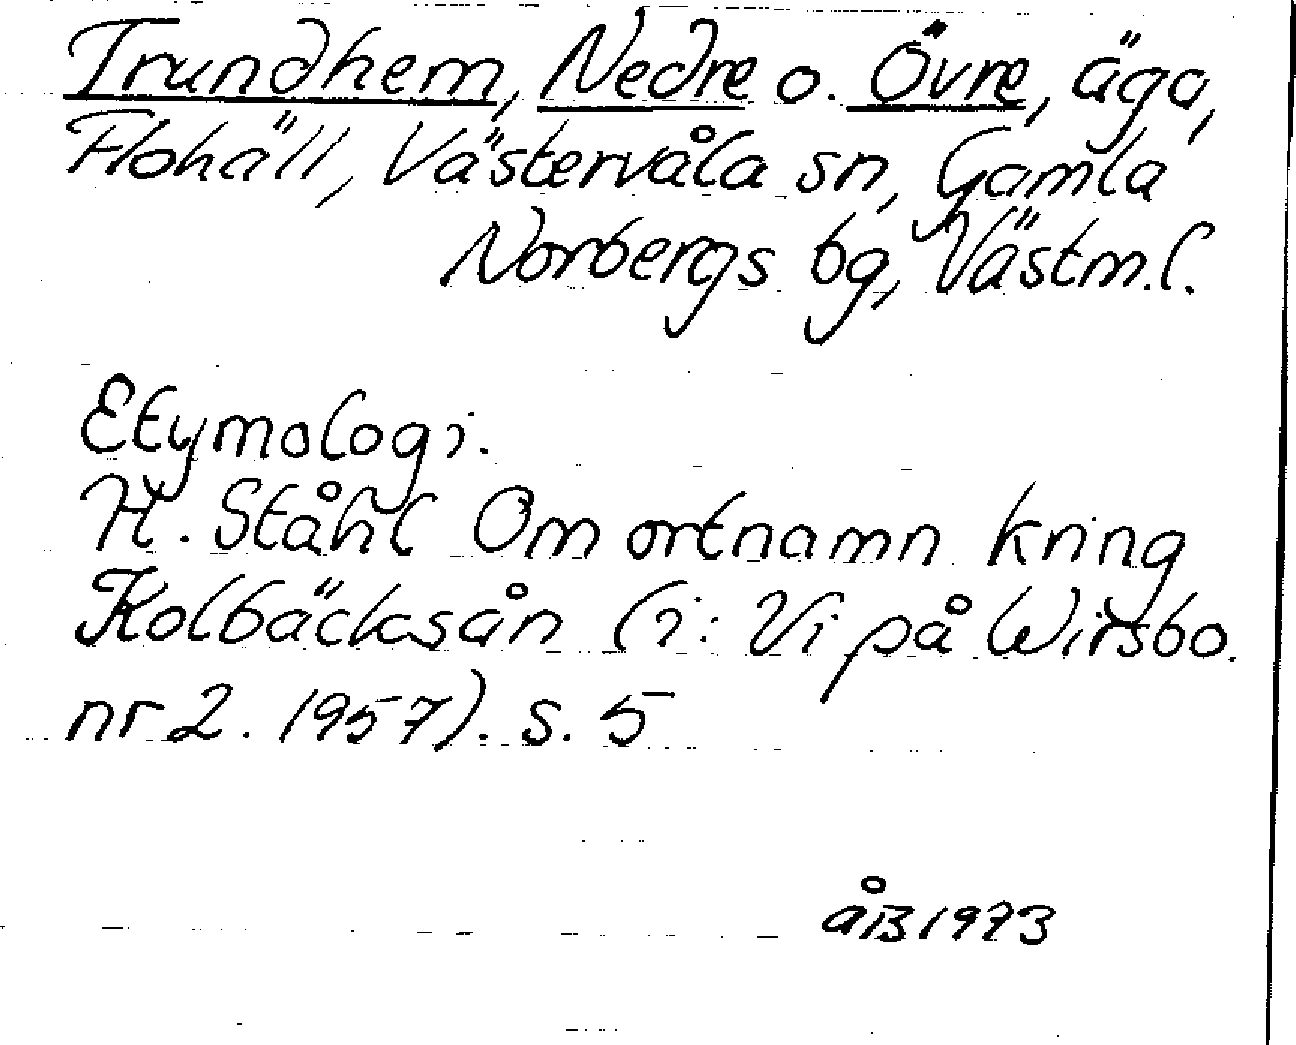 Trundhem, Nedre o. Övre, äga,
Flohäll, Västervåla sn, Gamla
Norbergs bg, Västm.l.
Etymologi.
H. Ståhl Om ortnamn kring
Kolbäcksån (i: Vi på Wirsbo.
nr 2. 1957). s. 5
åB 1973